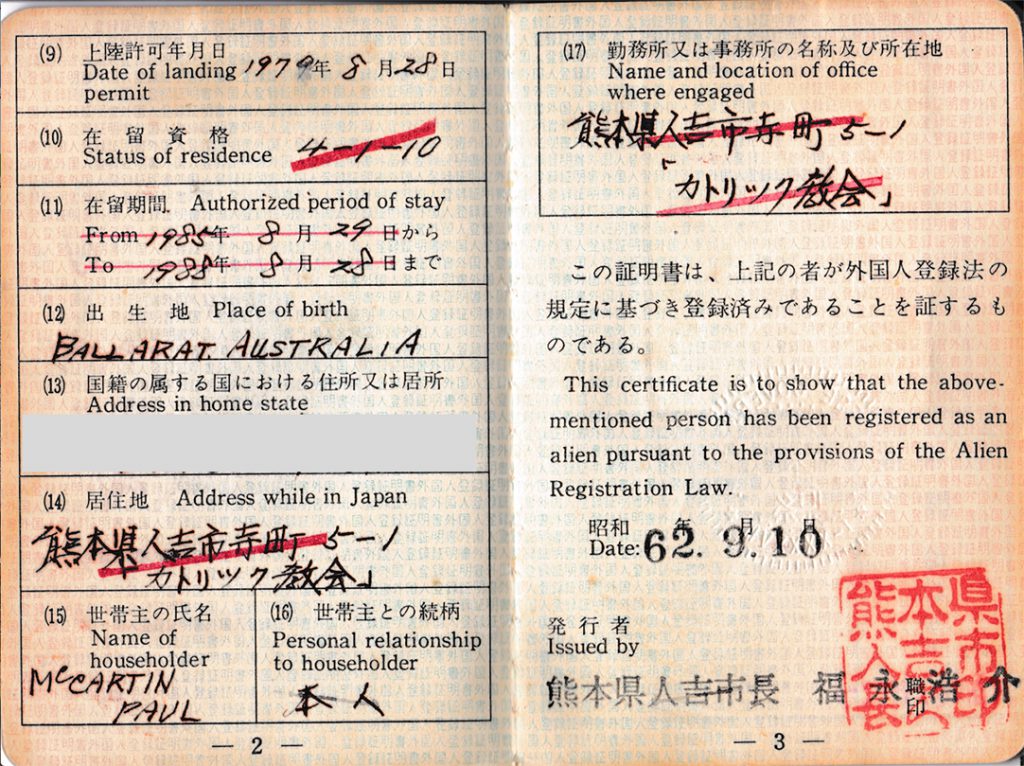 (9) 上陸許可年月日
Date of landing 1979年 8月28日
permit
(10) 在留資格
Status of residence 4-1-10
(11) 在留期間 Authorized period of stay
From 1985年 8月29日から
To 1988年 8月28日まで
(12) 出生地 Place of birth
BALLARAT. AUSTRALIA
(13) 国籍の属する国における住所又は居所
Address in home state
(14) 居住地 Address while in Japan
熊本県人吉市寺町 5-1
カトリック教会」
(15) 世帯主の氏名
Name of
householder
McCARTIN
PAUL
(16) 世帯主との続柄
Personal relationship
to householder
本人
— 2 —
(17) 勤務所又は事務所の名称及び所在地
Name and location of office
where engaged
熊本県人吉市寺町 5-1
「カトリック教会」
この証明書は、上記の者が外国人登録法の
規定に基づき登録済みであることを証するも
のである。
This certificate is to show that the above-
mentioned person has been registered as an
alien pursuant to the provisions of the Alien
Registration Law.
昭和 年 月 日
Date: 62. 9. 10
発行者
Issued by
熊本県人吉市長 福永浩介
職印
熊本県人吉市長印
— 3 —